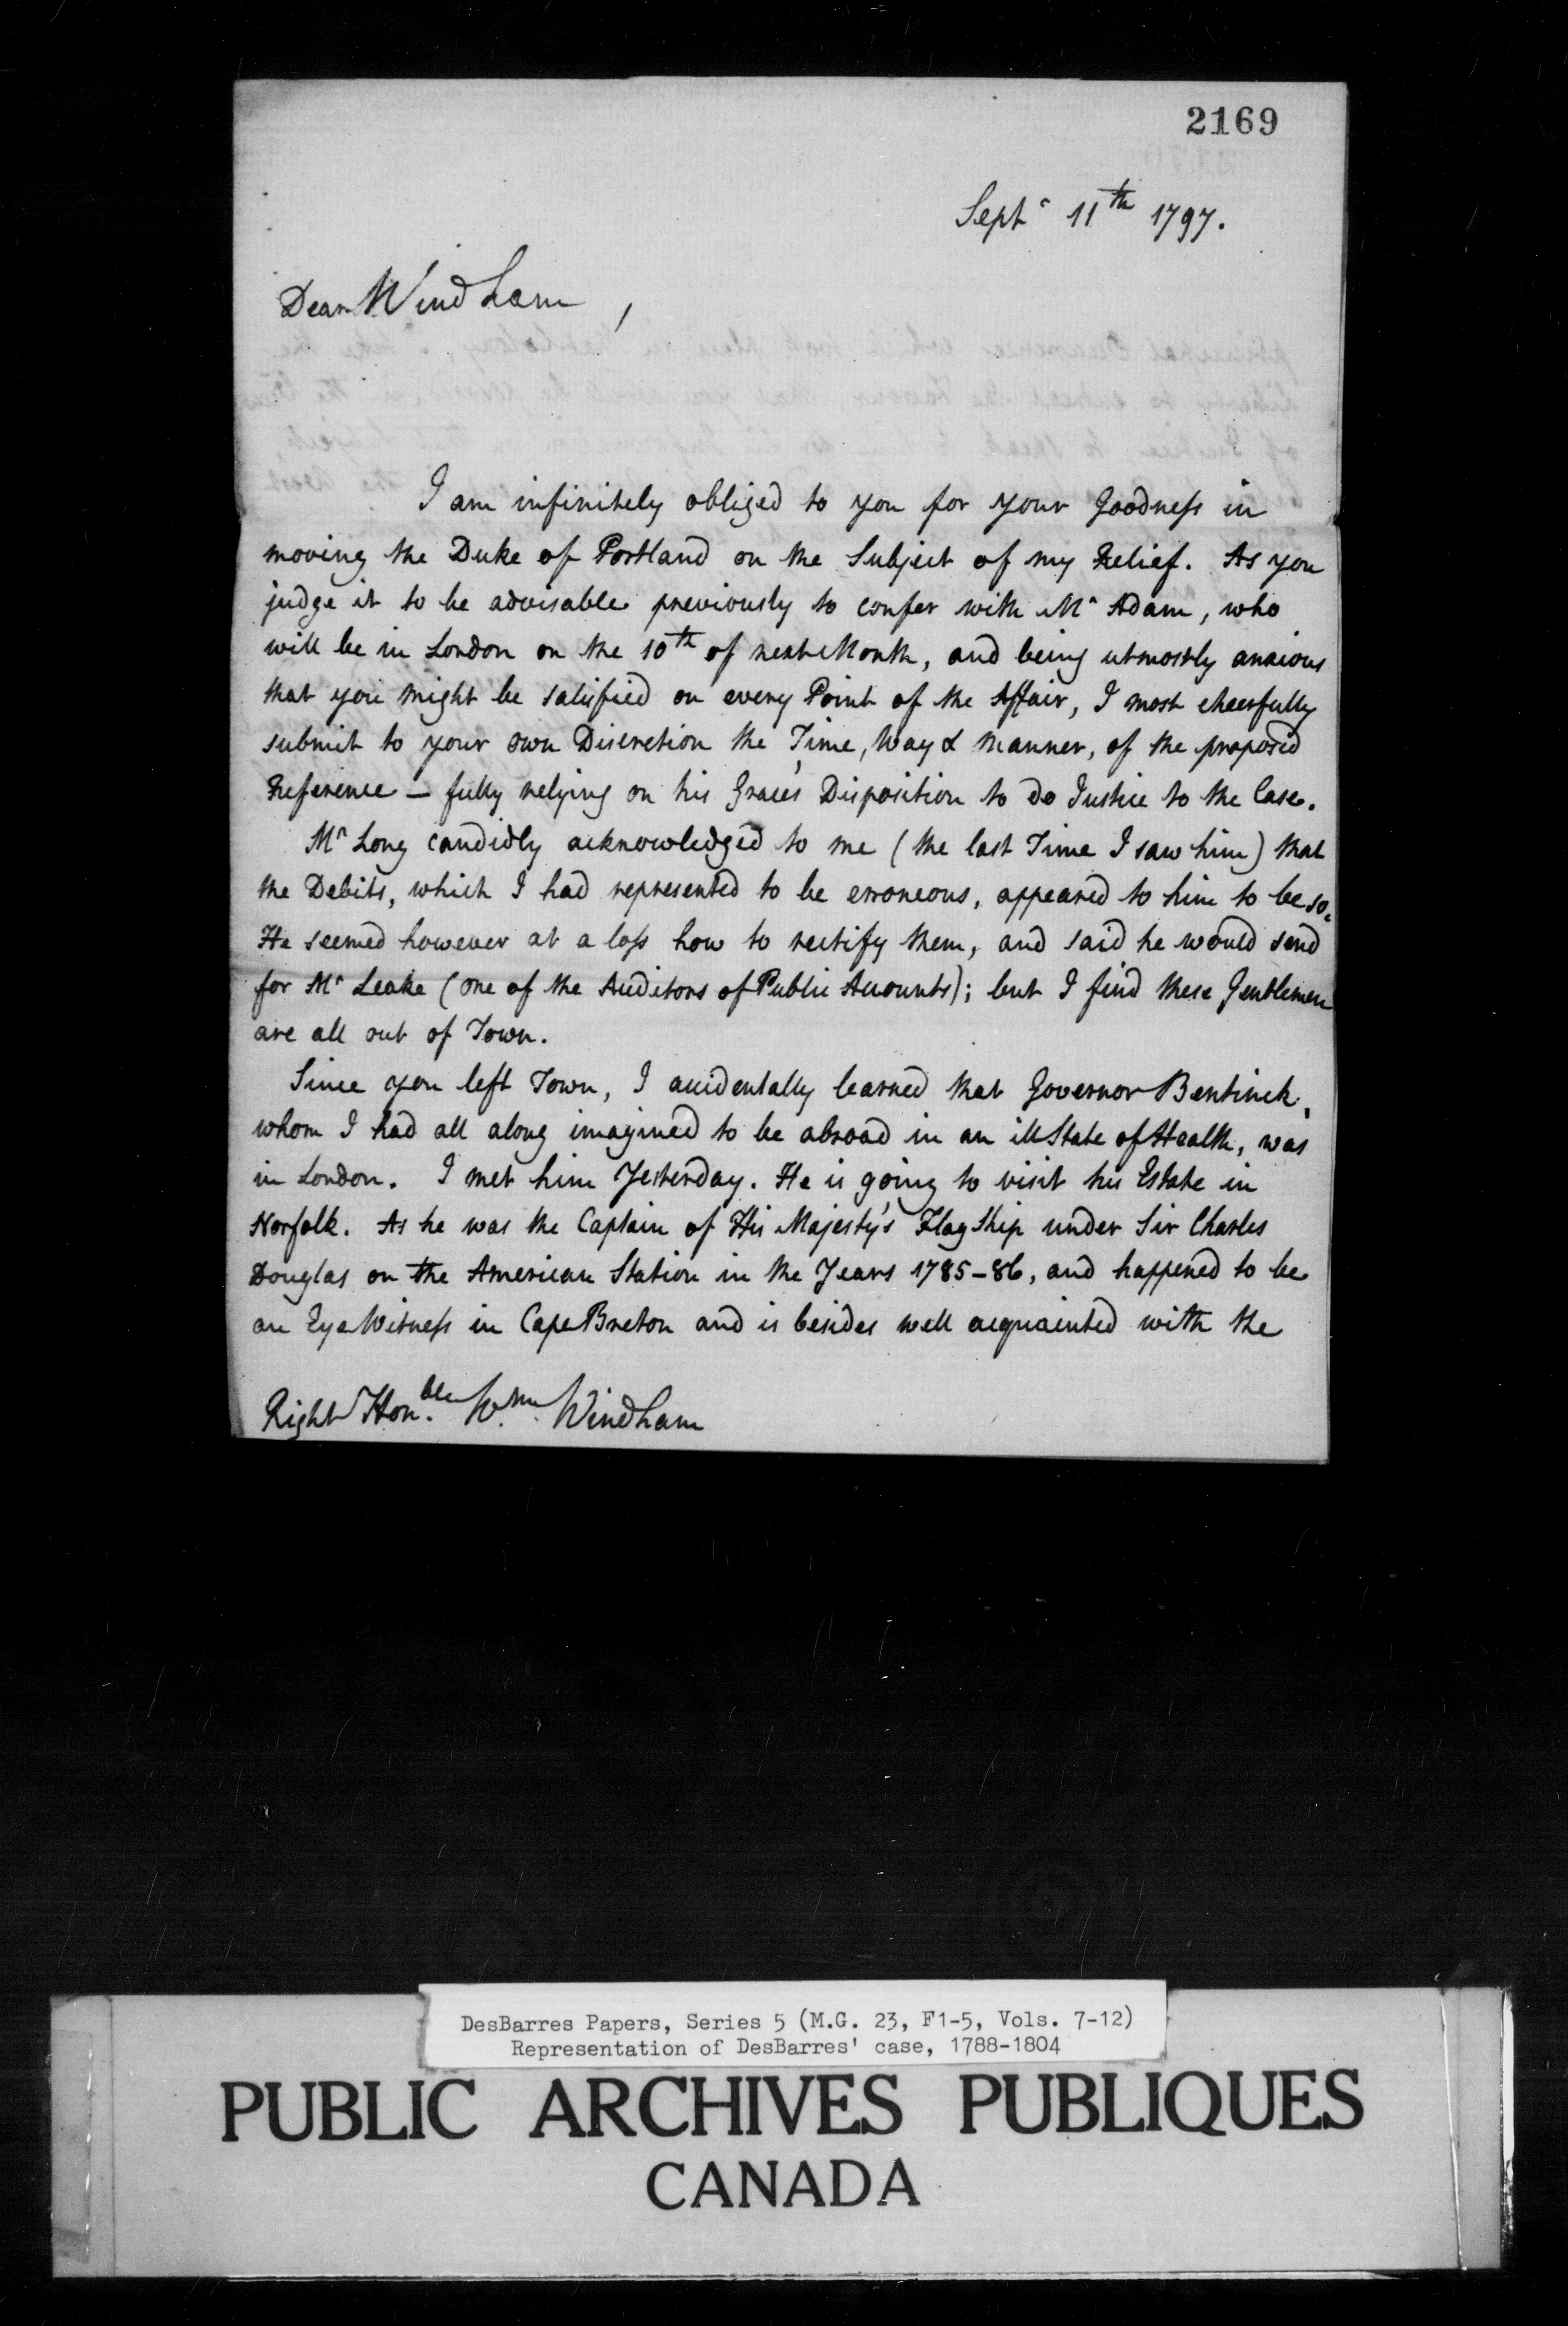 2169
Sept.r 11th 1797.
Dear Windham,
I am infinitely obliged to you for your Goodness in
moving the Duke of Portland on the Subject of my Relief. As you
judge it to be advisable previously to confer with Mr Adam, who
will be in London on the 10th of next Month, and being utmostly anxious
that you might be satisfied on every Point of the Affair, I most cheerfully
submit to your own Discretion the Time, Way & Manner, of the proposed
Reference — fully relying on his Grace's Disposition to do Justice to the Case.
Mr Long candidly acknowledged to me (the last Time I saw him) that
the Debits, which I had represented to be erroneous, appeared to him to be so.
He seemed however at a loss how to rectify them, and said he would send
for Mr Leake (one of the Auditors of Public Accounts); but I find these Gentlemen
are all out of Town.
Since you left Town, I accidentally learned that Governor Bentinck,
whom I had all along imagined to be abroad in an ill State of Health, was
in London. I met him Yesterday. He is going to visit his Estate in
Norfolk. As he was the Captain of His Majesty's Flag Ship under Sir Charles
Douglas on the American Station in the Years 1785-86, and happened to be
an Eye Witness in Cape Breton and is besides well acquainted with the
Right Hon.ble Wm. Windham
DesBarres Papers, Series 5 (M.G. 23, F1-5, Vols. 7-12)
Representation of DesBarres' case, 1788-1804
PUBLIC ARCHIVES PUBLIQUES
CANADA